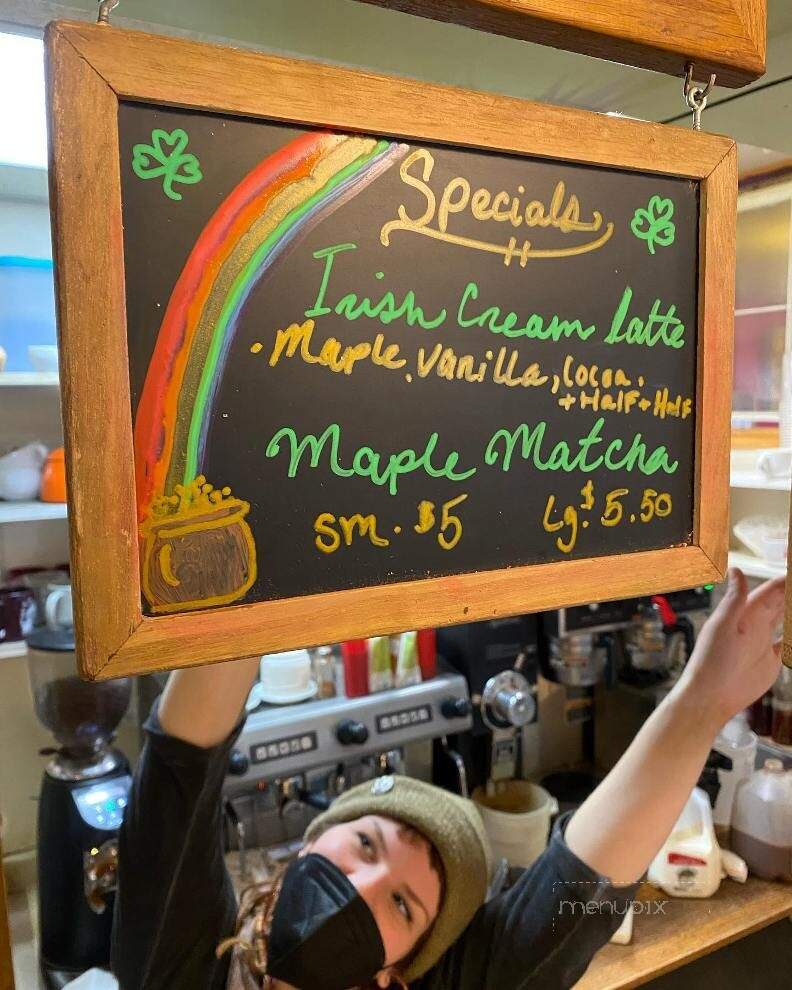 Specials
Irish Cream latte
• Maple, vanilla, cocoa.
+ Half + Half
Maple Matcha
sm. $5 Lg. $5.50
menupix